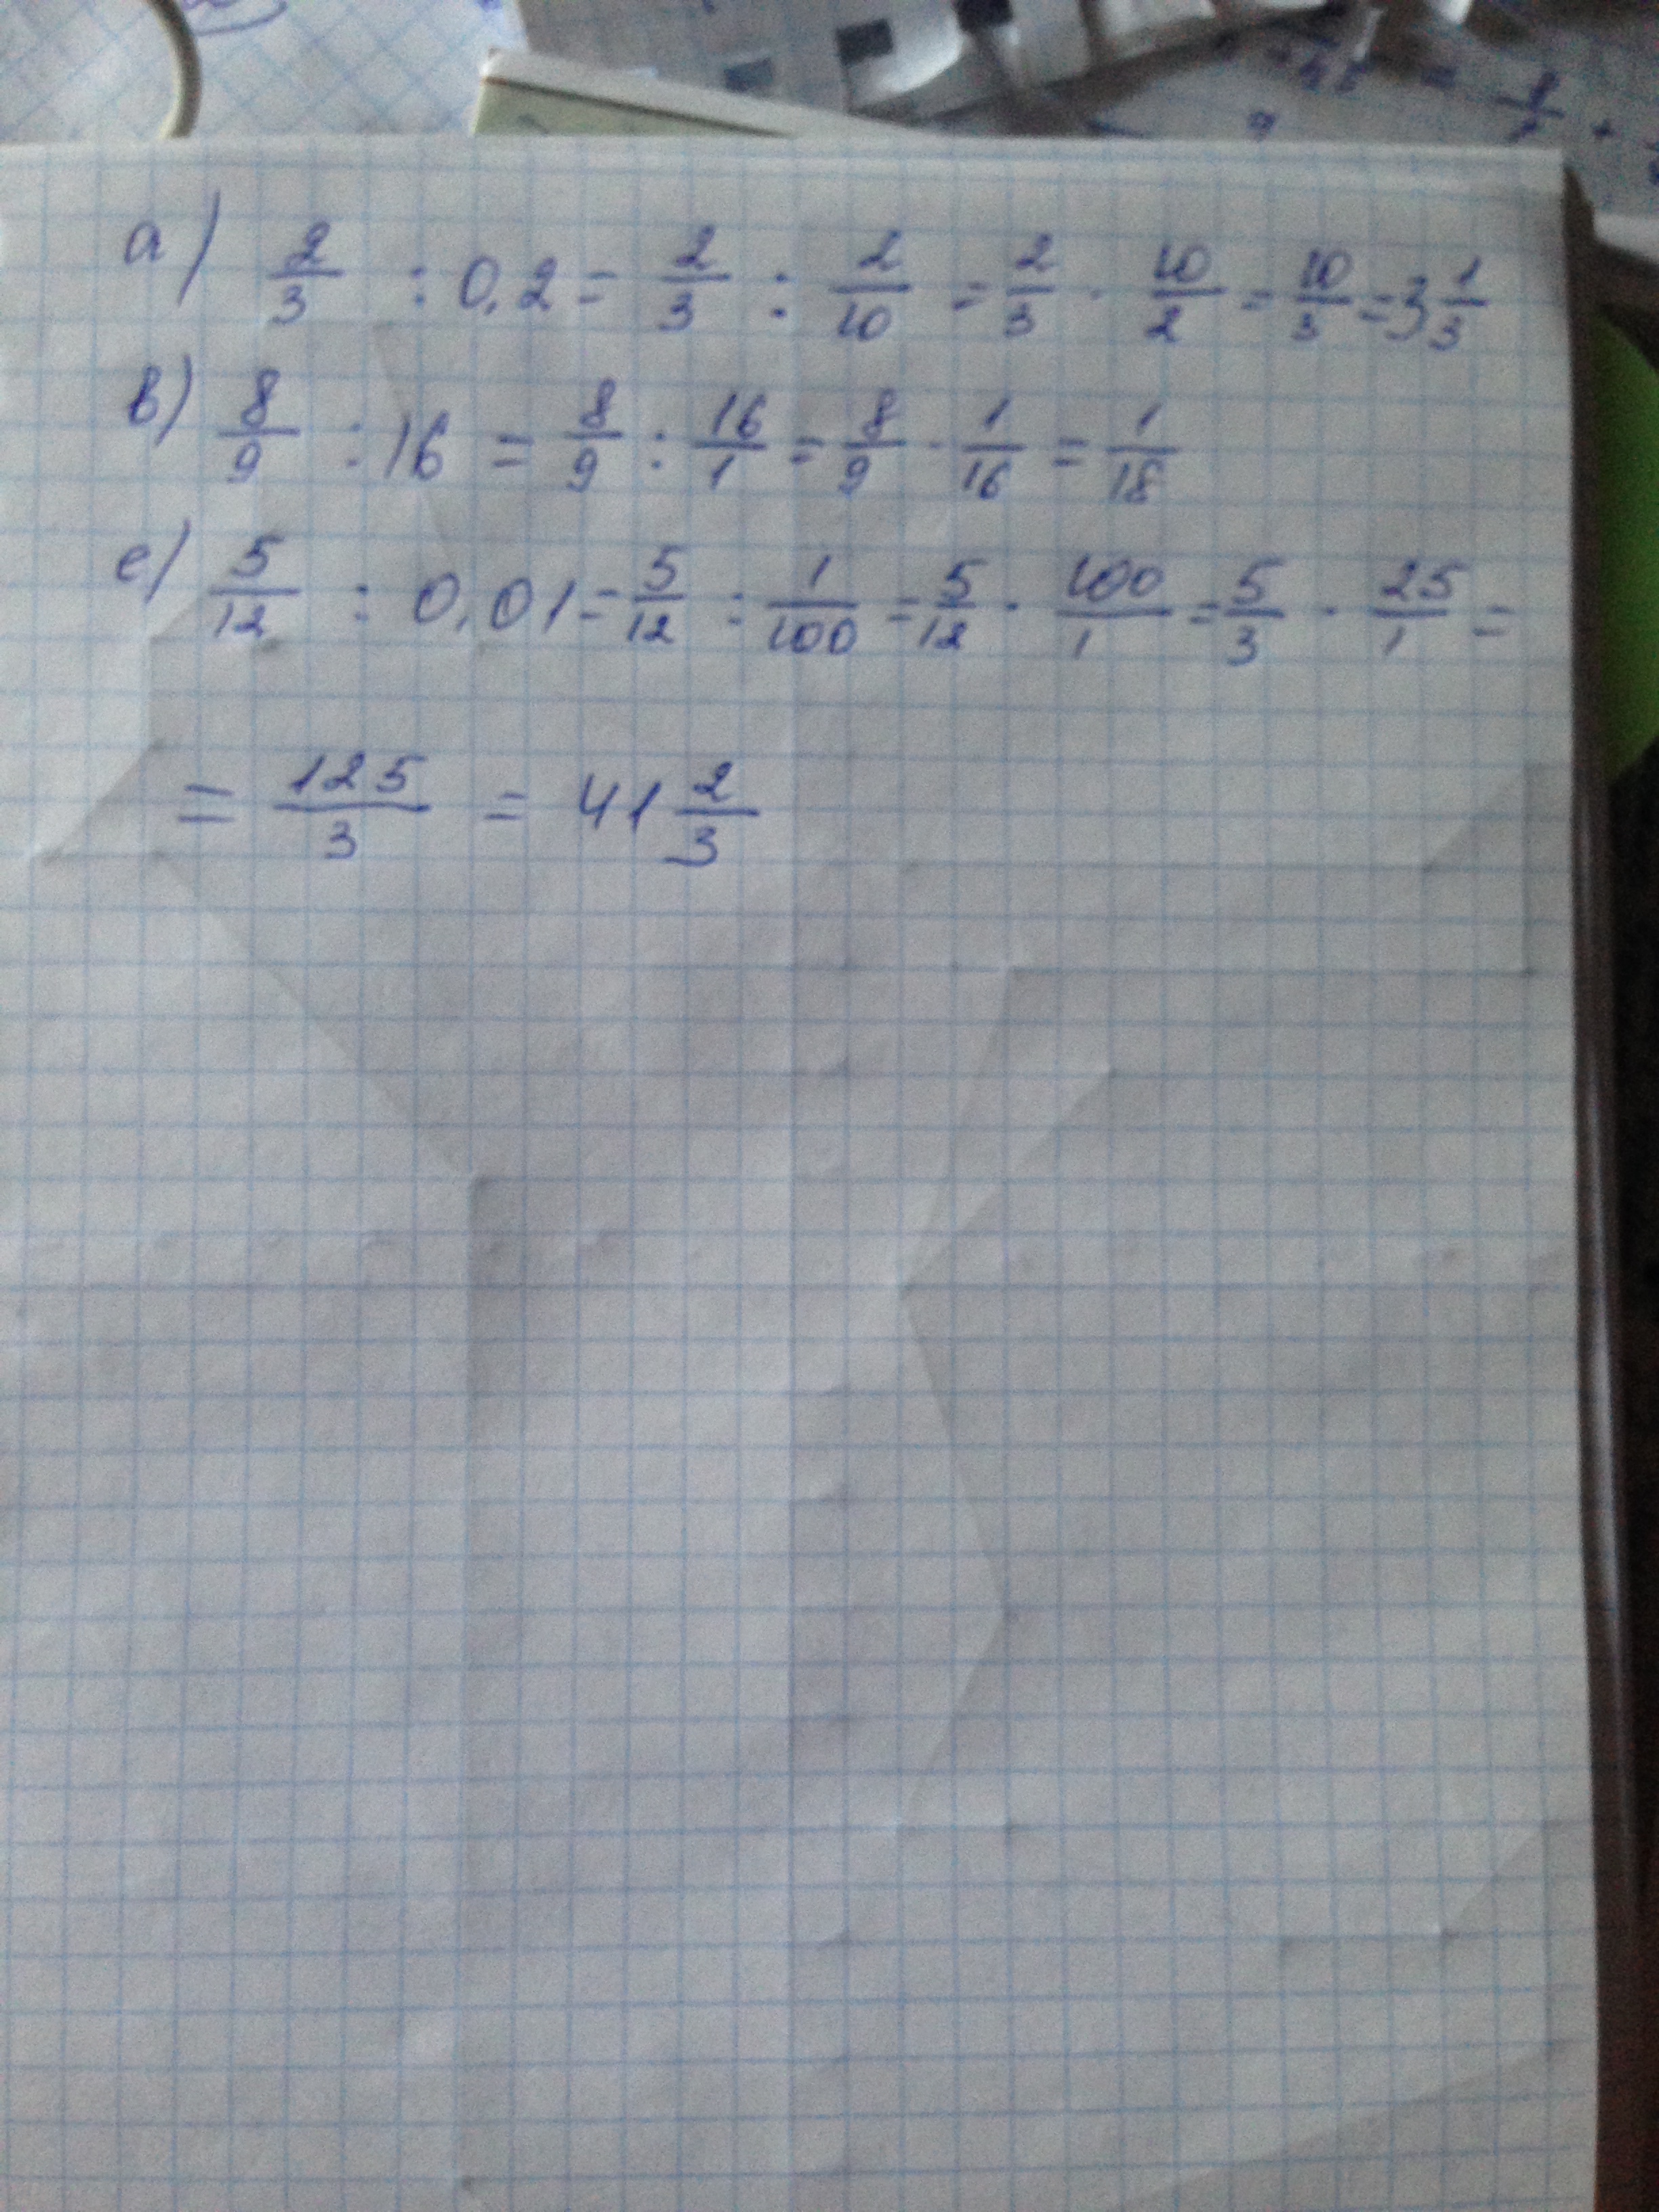 а) 2/3 : 0,2 = 2/3 : 2/10 = 2/3 · 10/2 = 10/3 = 3 1/3
в) 8/9 : 16 = 8/9 : 16/1 = 8/9 · 1/16 = 1/18
е) 5/12 : 0,01 = 5/12 : 1/100 = 5/12 · 100/1 = 5/3 · 25/1 =
= 125/3 = 41 2/3